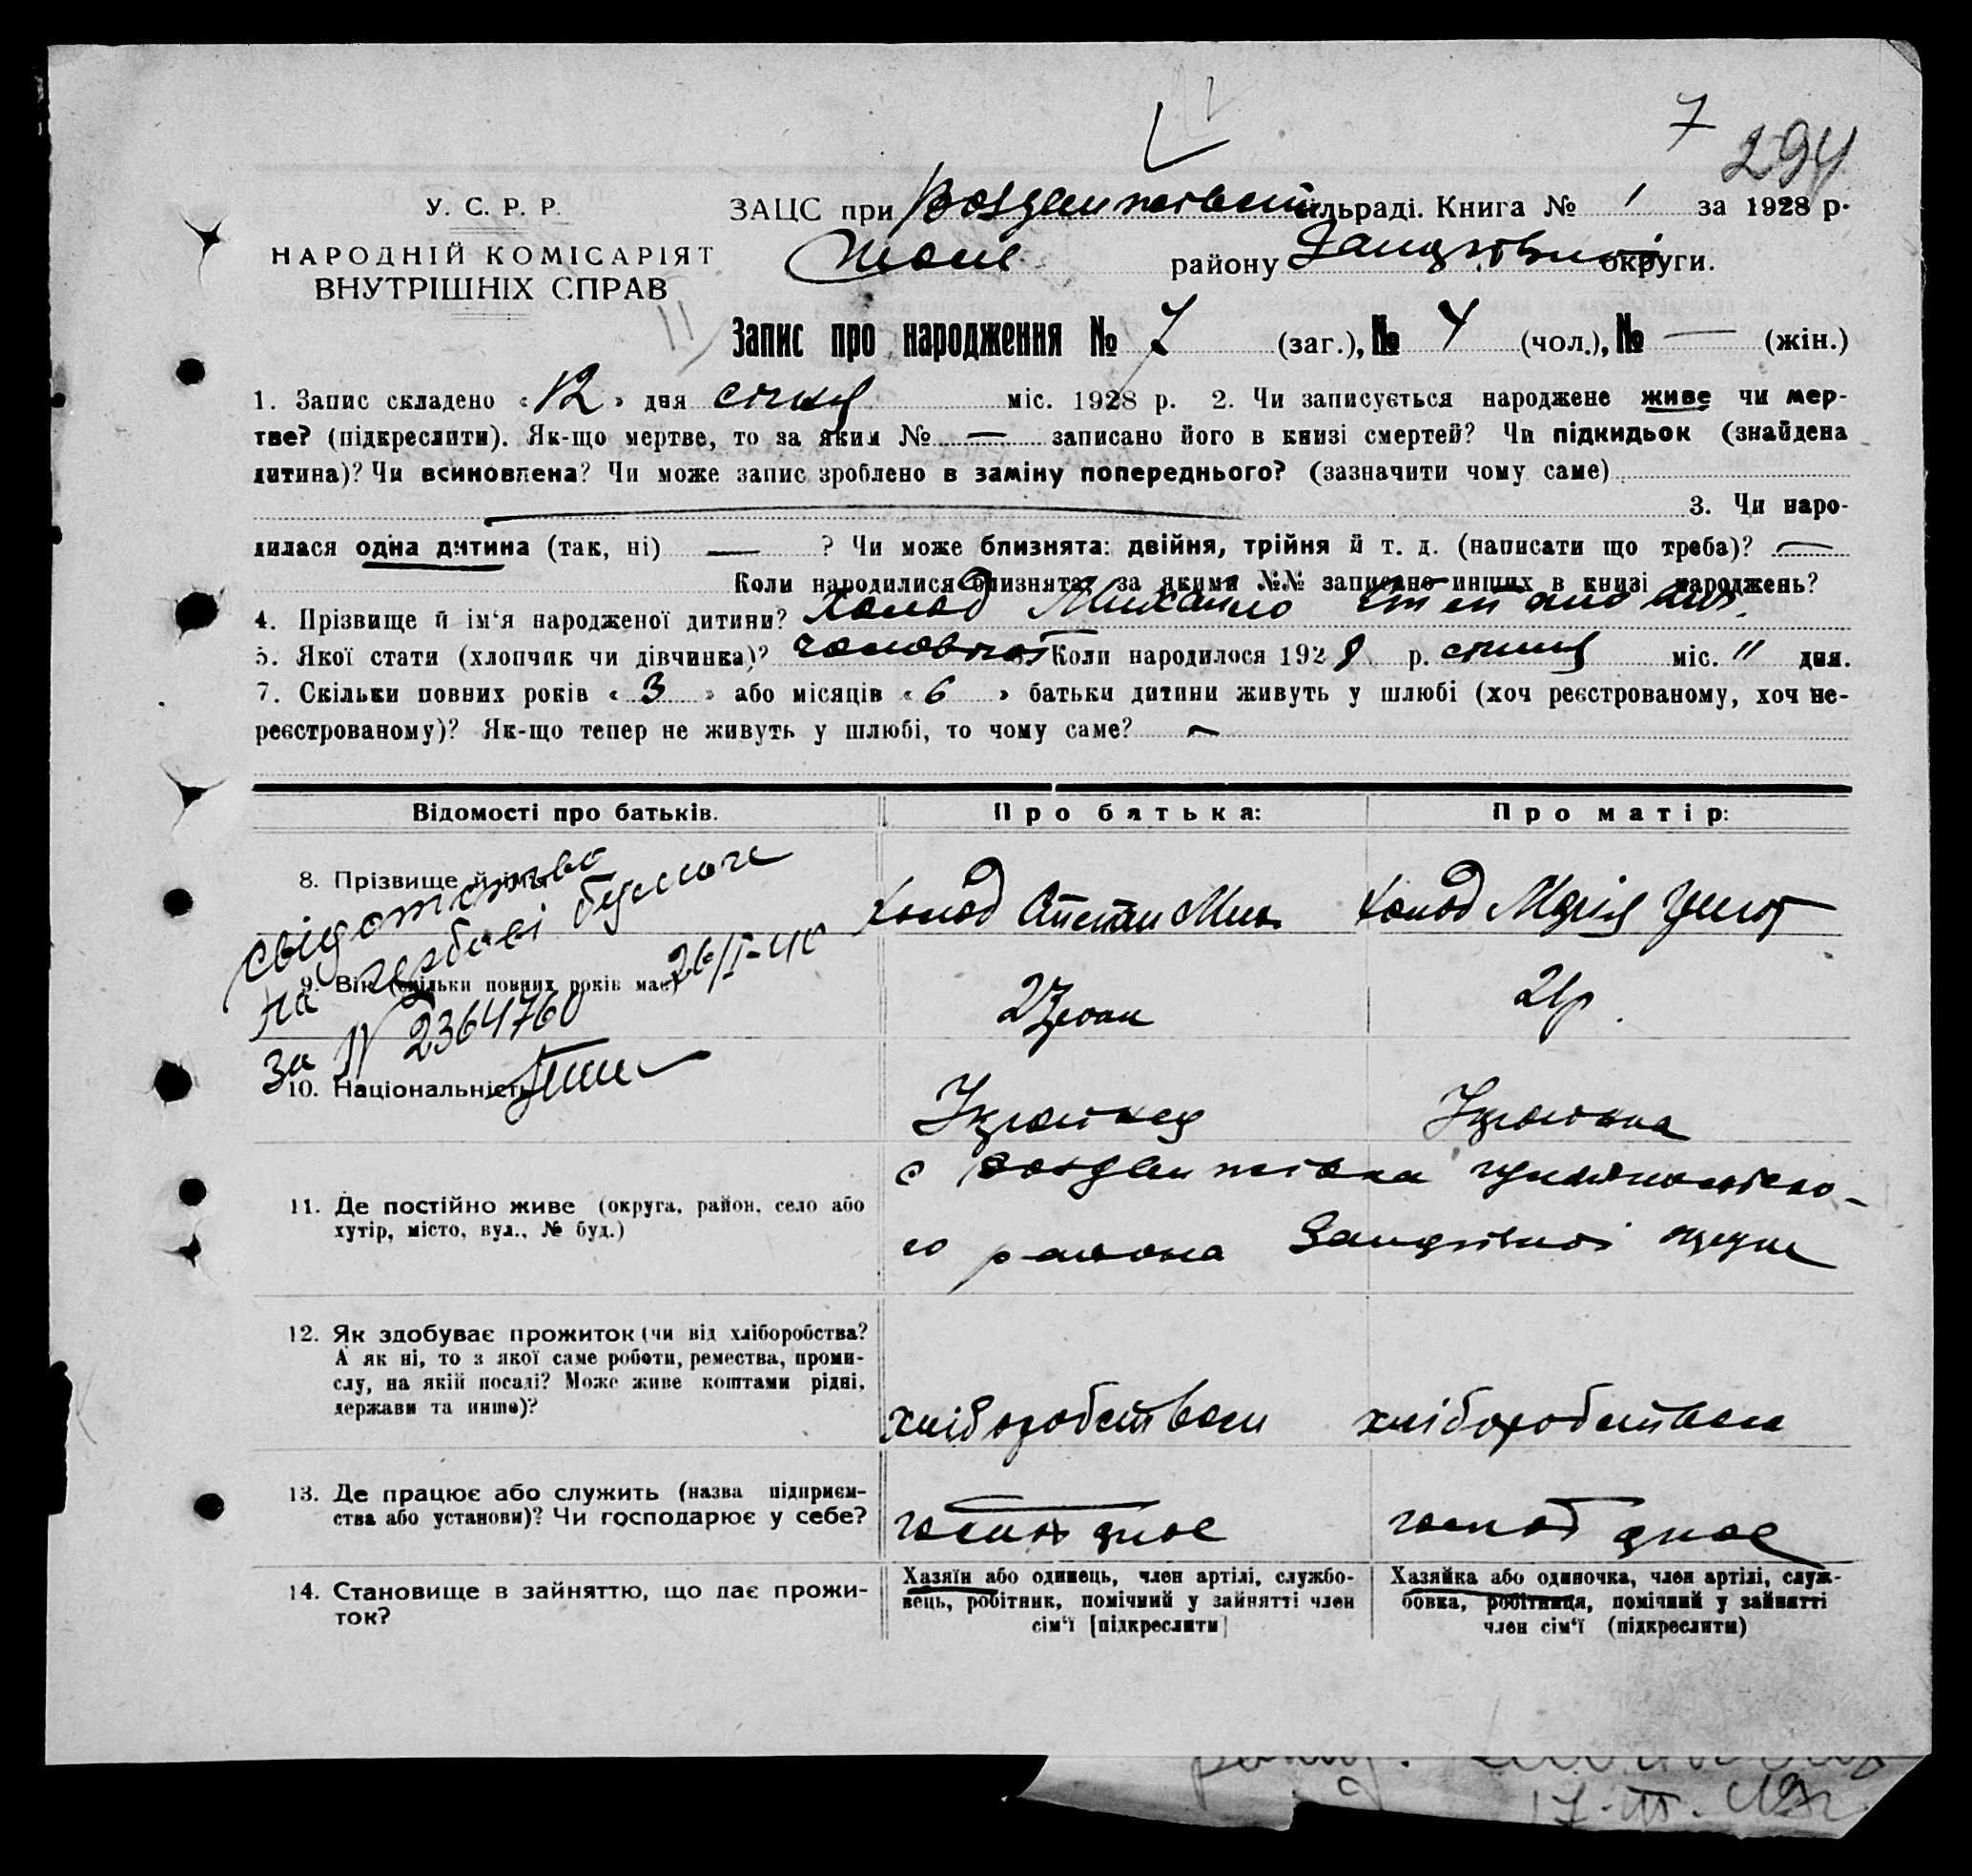 7
294
У. С. Р. Р.
НАРОДНІЙ КОМІСАРІЯТ
ВНУТРІШНІХ СПРАВ
ЗАЦС при сільраді. Книга № 1 за 1928 р.
району округи.
Запис про народження № 7 (заг.), № 4 (чол.), № — (жін.)
1. Запис складено «12» дня січня міс. 1928 р. 2. Чи записується народжене живе чи мер-
тве? (підкреслити). Як-що мертве, то за яким № — записано його в книзі смертей? Чи підкидьок (знайдена
дитина)? Чи всиновлена? Чи може запис зроблено в заміну попереднього? (зазначити чому саме)
3. Чи наро-
дилася одна дитина (так, ні) — ? Чи може близнята: двійня, трійня й т. д. (написати що треба)? —
Коли народилися близнята, за якими №№ записано инших в книзі народжень?
4. Прізвище й ім‘я народженої дитини? Холод Михайло Степанович
5. Якої стати (хлопчик чи дівчинка)? чоловічої Коли народилося 1928 р. січня міс. 11 дня.
7. Скільки повних років «3» або місяців «6» батьки дитини живуть у шлюбі (хоч реєстрованому, хоч не-
реєстрованому)? Як-що тепер не живуть у шлюбі, то чому саме? —
Відомості про батьків.
Про батька:
Про матір:
8. Прізвище й ім‘я
Холод Степан Мих.
Холод Марія
свідотство
на гербові бумаге
26/I-40
за № 2364760
9. Вік (скільки повних років має)
27 роки
21 р.
10. Національність
Українец
Українка
11. Де постійно живе (округа, район, село або
хутір, місто, вул., № буд.)
с Воздвижівка
го района округи
12. Як здобуває прожиток (чи від хліборобства?
А як ні, то з якої саме роботи, ремества, проми-
слу, на якій посаді? Може живе коштами рідні,
держави та инше)?
хліборобством
хліборобством
13. Де працює або служить (назва підприєм-
ства або установи)? Чи господарює у себе?
господарює
господарює
14. Становище в зайняттю, що дає прожи-
ток?
Хазяїн або одинець, член артілі, службо-
вець, робітник, помічний у зайнятті член
сім‘ї [підкреслити]
Хазяйка або одиночка, член артілі, служ-
бовка, робітниця, помічний у зайнятті
член сім‘ї (підкреслити)